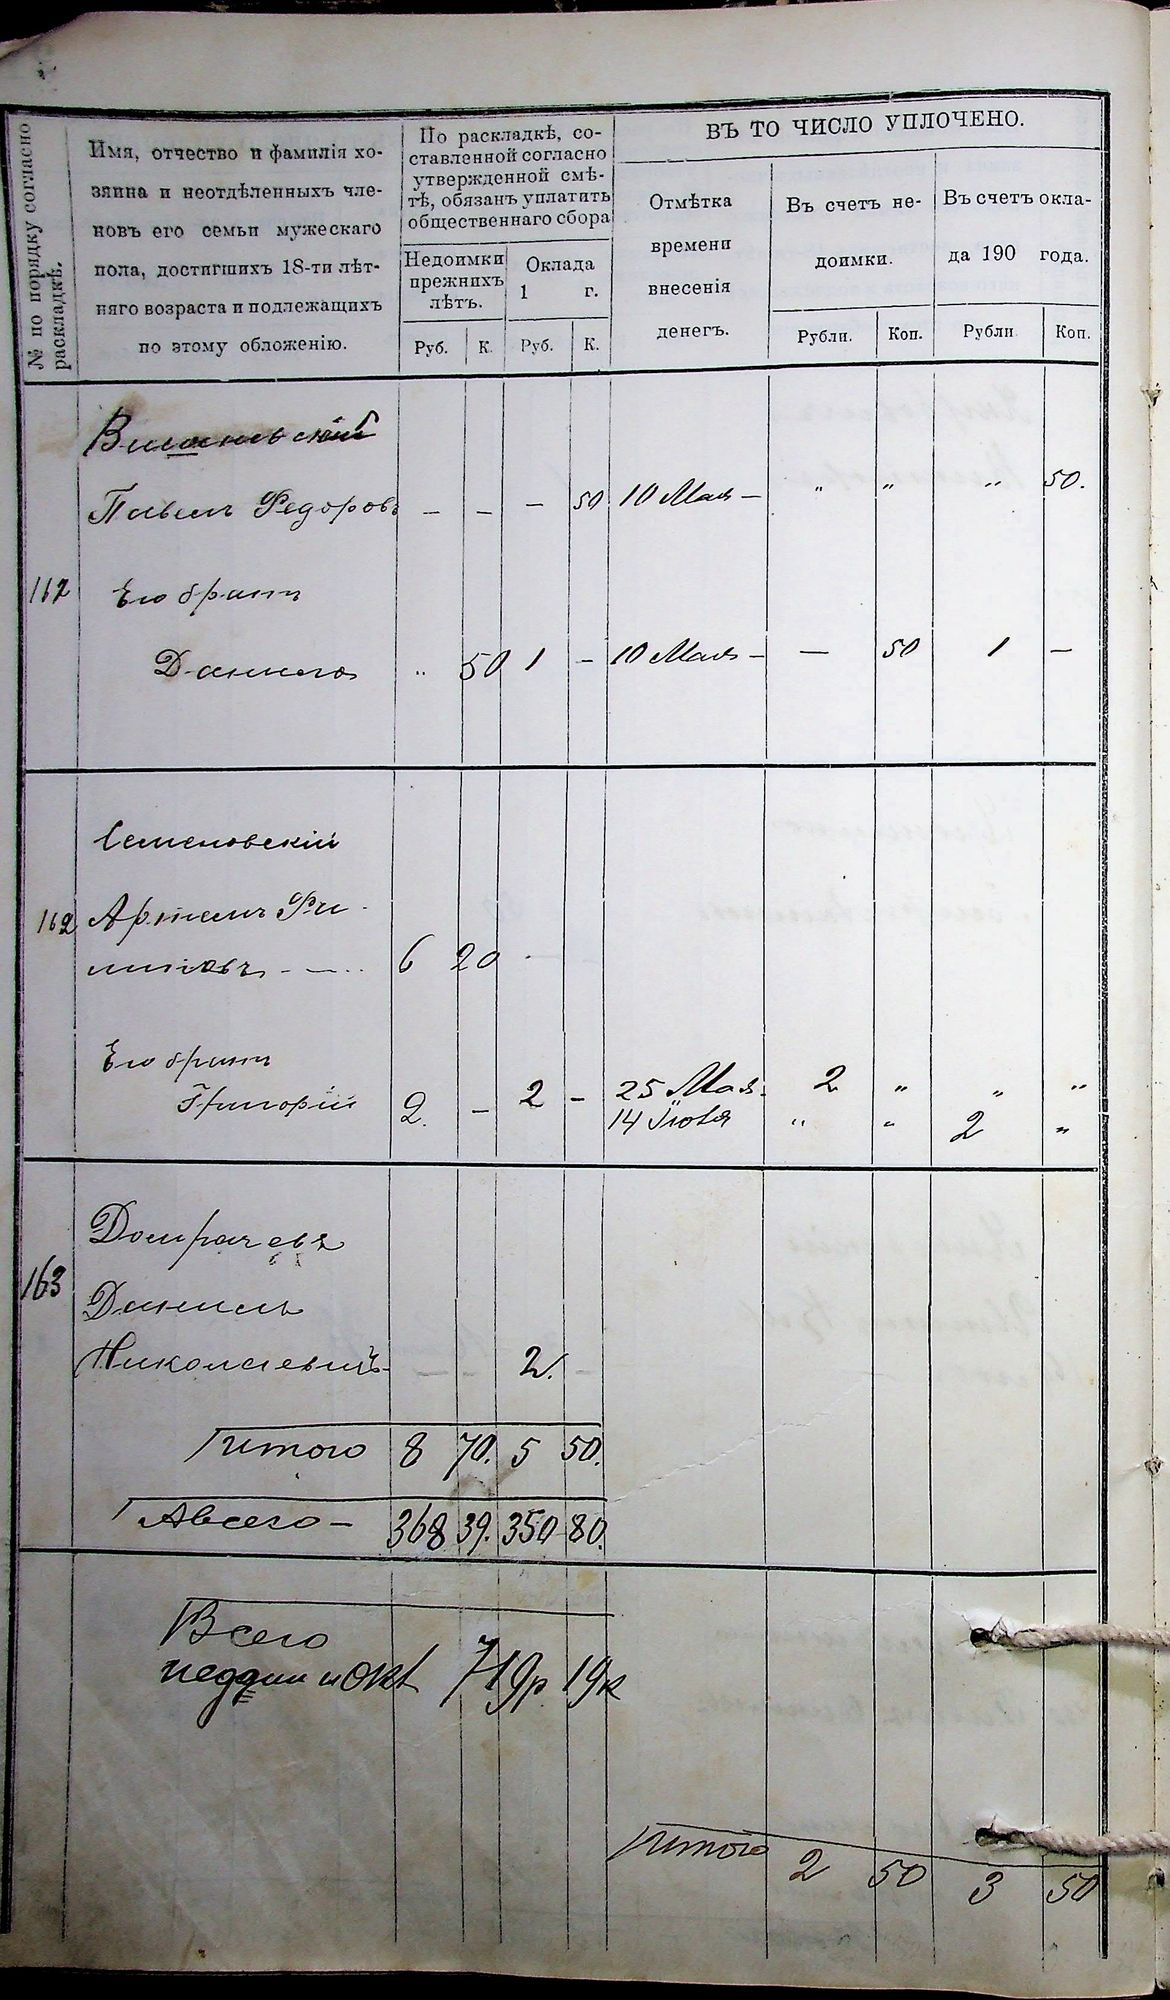 № по порядку согласно
раскладкѣ.
Имя, отчество и фамилія хо-
зяина и неотдѣленныхъ чле-
новъ его семьи мужескаго
пола, достигшихъ 18-ти лѣт-
няго возраста и подлежащихъ
по этому обложенію.
По раскладкѣ, со-
ставленной согласно
утвержденной смѣ-
тѣ, обязанъ уплатить
общественнаго сбора
Недоимки
прежнихъ
лѣтъ.
Оклада
1 г.
Руб. К. Руб. К.
ВЪ ТО ЧИСЛО УПЛОЧЕНО.
Отмѣтка
времени
внесенія
денегъ.
Въ счетъ не-
доимки.
Въ счетъ окла-
да 190 года.
Рубли. Коп. Рубли Коп.
Павелъ Федоровъ — — — 50 10 Мая — " " " 50.
162 Его братъ
Данило " 50 1 — 10 Мая — — 50 1 —
Семеновскій
162 Артемъ Фи-
липовъ 6 20
Его братъ
Григорій 2. — 2 — 25 Мая. 2 " " "
14 Іюля " " 2 "
Домрачевъ
163
Данилъ
Николаевичъ — — 2. —
Итого 8 70. 5 50.
А всего — 368 39. 350 80.
Всего
недоим и окл 719р 19к
Итого 2 50 3 50